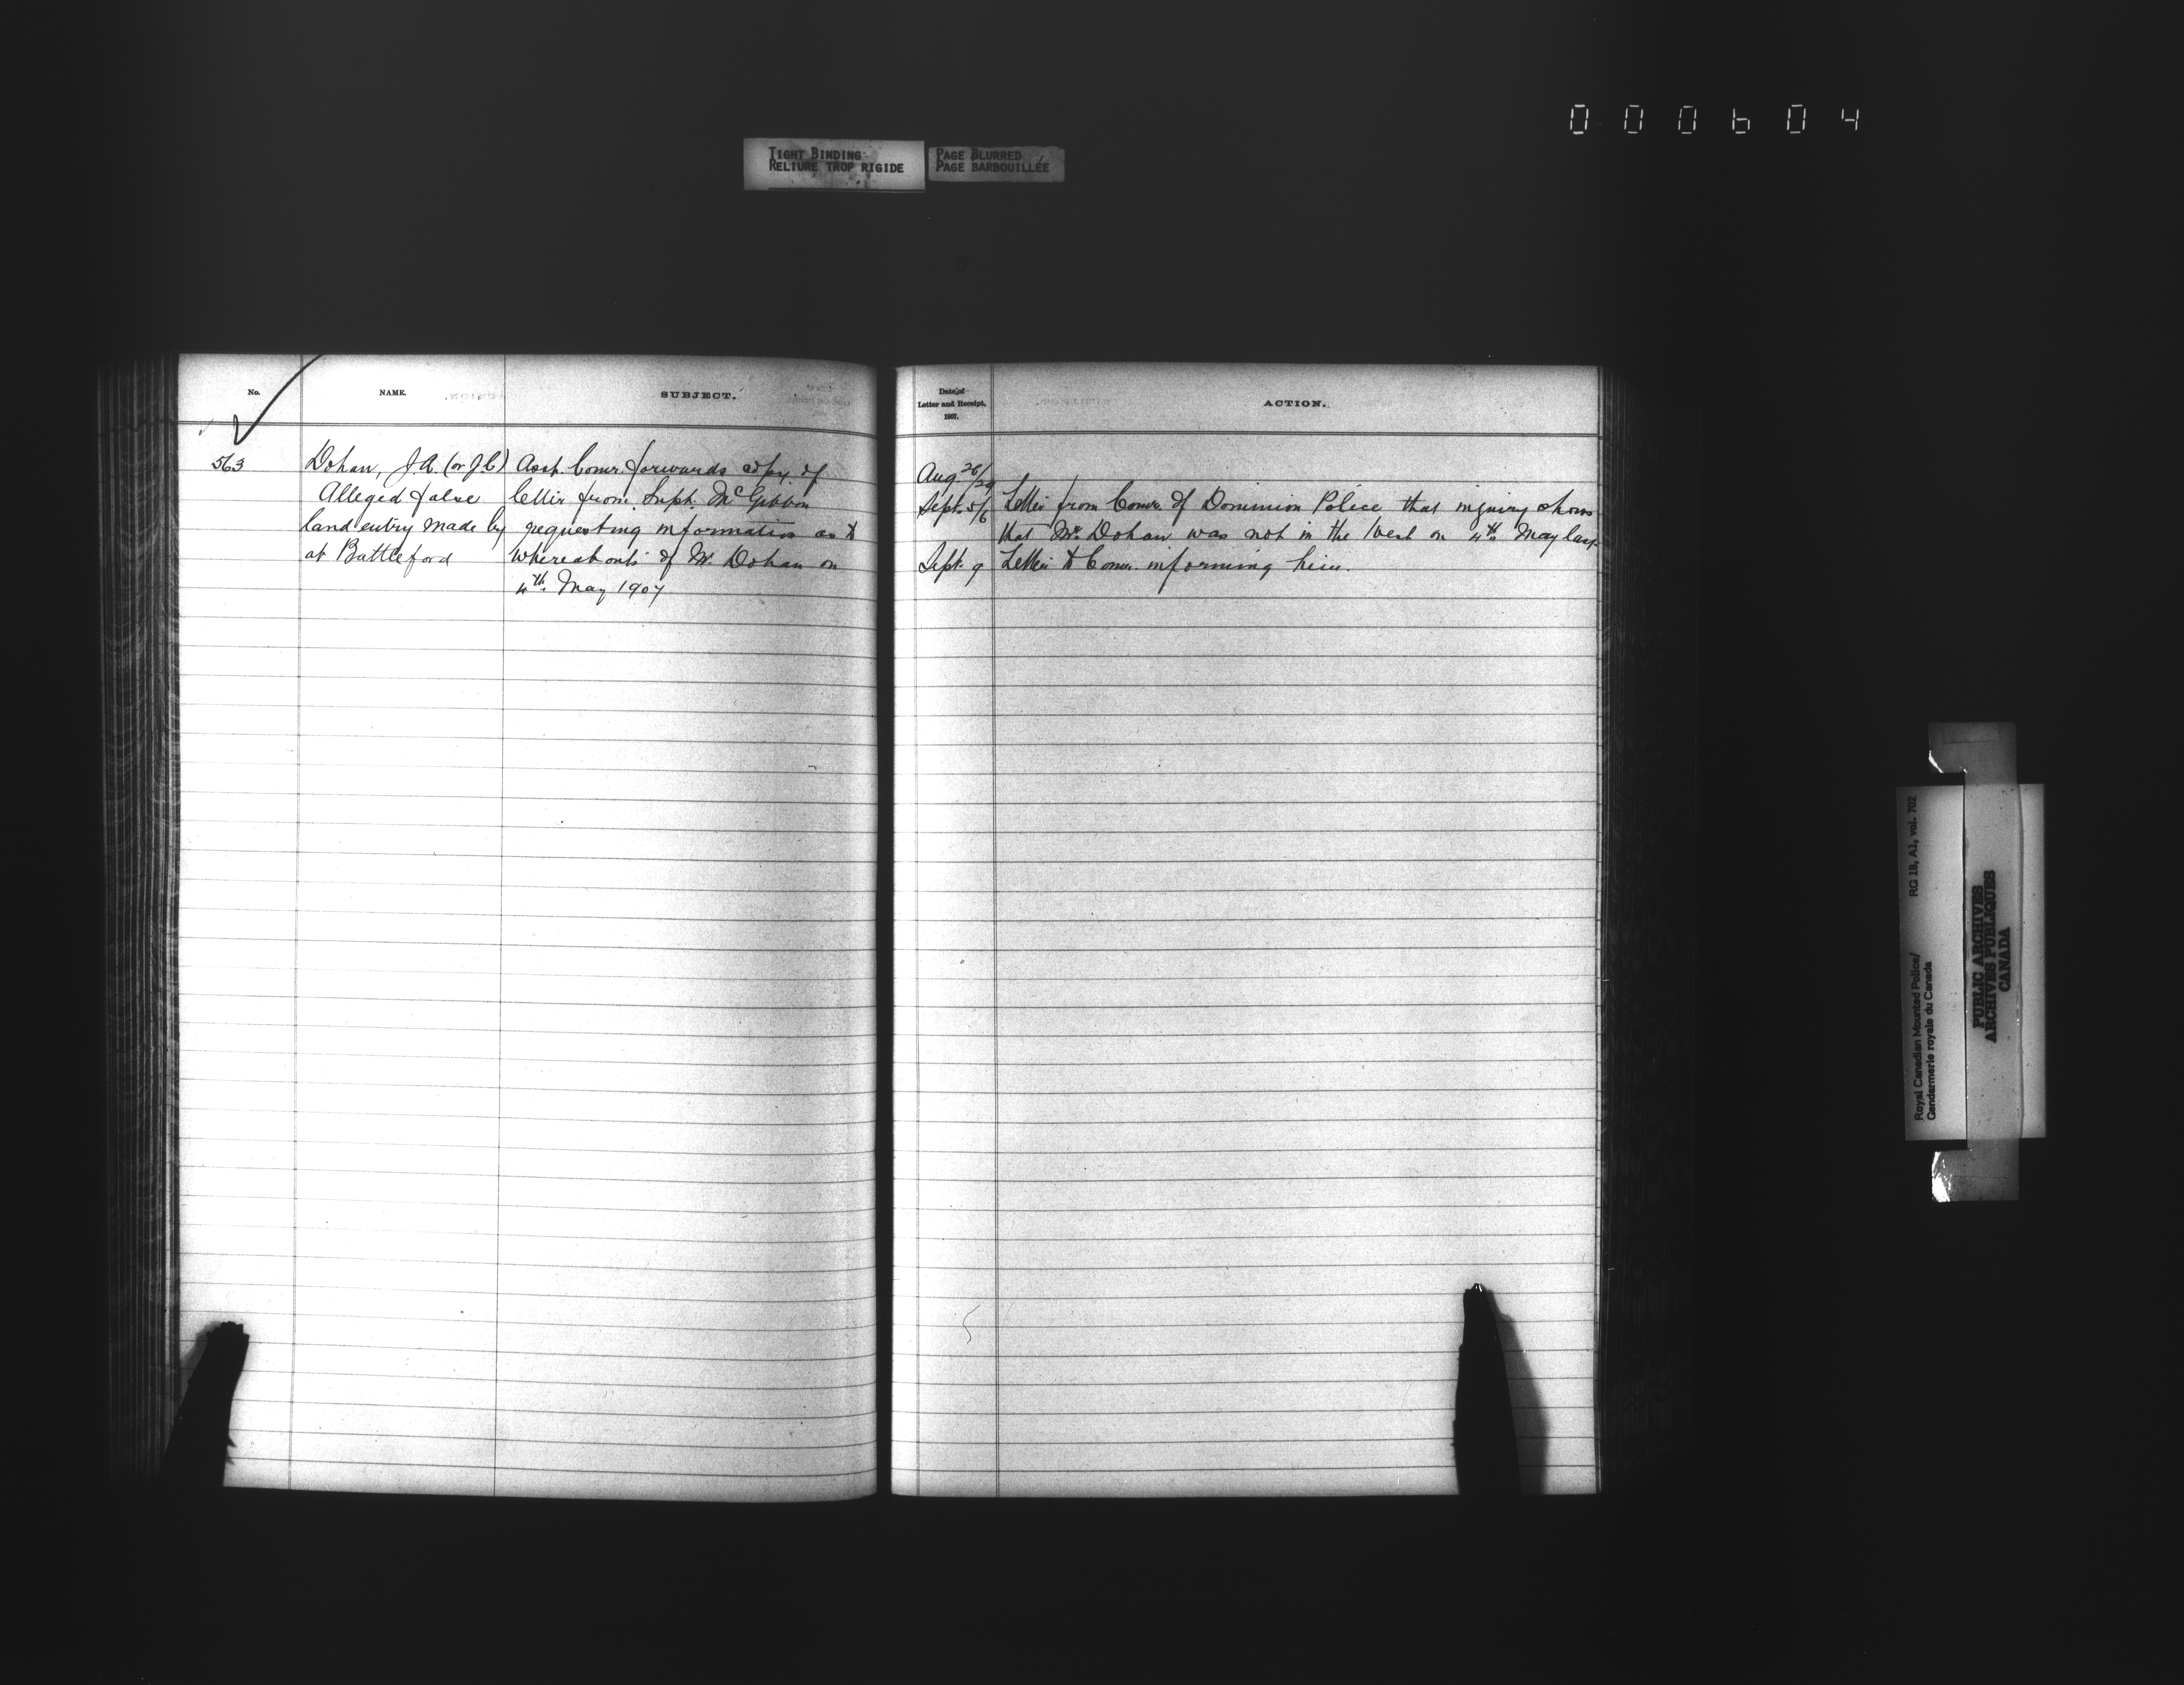 000604
TIGHT BINDING
RELIURE TROP RIGIDE
PAGE BLURRED
PAGE BARBOUILLÉE
No.
NAME.
SUBJECT.
563
Dohan, J.A. (or J.C)
Alleged false
land entry made by
at Battleford
Asst. Comr. forwards copy of
letter from Supt. McGibbon
requesting information as to
whereabouts of Mr. Dohan on
4th. May 1907
Date of
Letter and Receipt,
1907.
ACTION.
Aug 26/29
Sept. 5/6 Letter from Comr. of Dominion Police that inquiry shows
that Mr. Dohan was not in the West on 4th May last
Sept. 9 Letter to Comr. informing him.
Royal Canadian Mounted Police/
Gendarmerie royale du Canada
RG 18, A1, vol. 702
PUBLIC ARCHIVES
ARCHIVES PUBLIQUES
CANADA